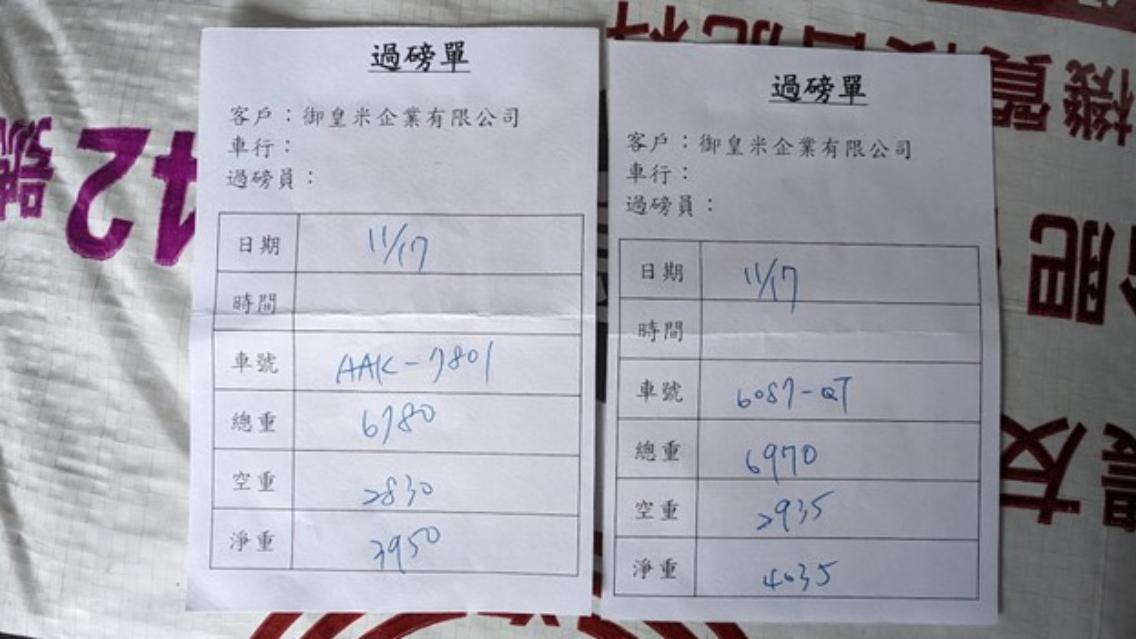 過磅單
客戶：御皇米企業有限公司
車行：
過磅員：
日期 11/17
時間
車號 AAK-7801
總重 6780
空重 2830
淨重 3950
過磅單
客戶：御皇米企業有限公司
車行：
過磅員：
日期 11/17
時間
車號 6087-QT
總重 6970
空重 2935
淨重 4035
42號
肥
友